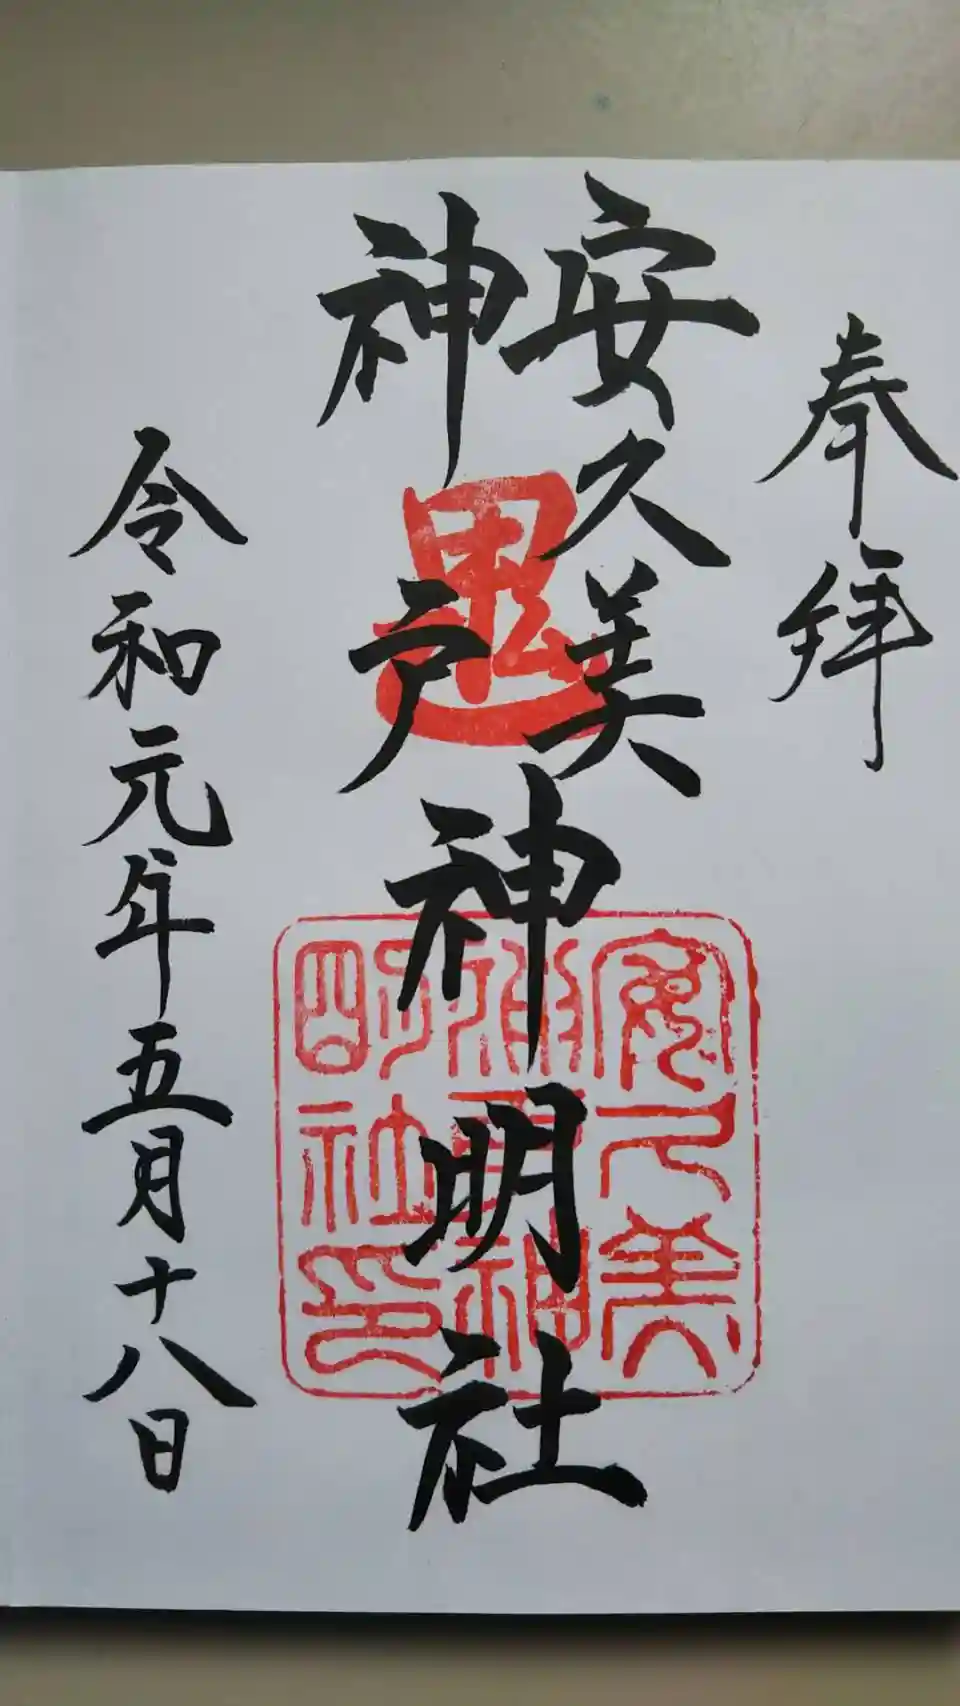 奉拝
安久美
神戸
神明社
令和元年五月十八日
鬼
安久美
神戸神
明社印